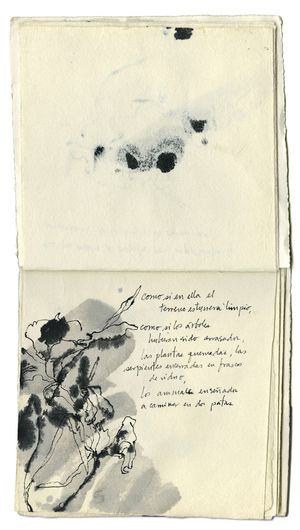 como si en ella el
terreno estuviera limpio,
como si los árboles
hubieran sido arrasados,
las plantas quemadas, las
serpientes encerradas en frascos
de vidrio,
los animales enseñados
a caminar en dos patas.